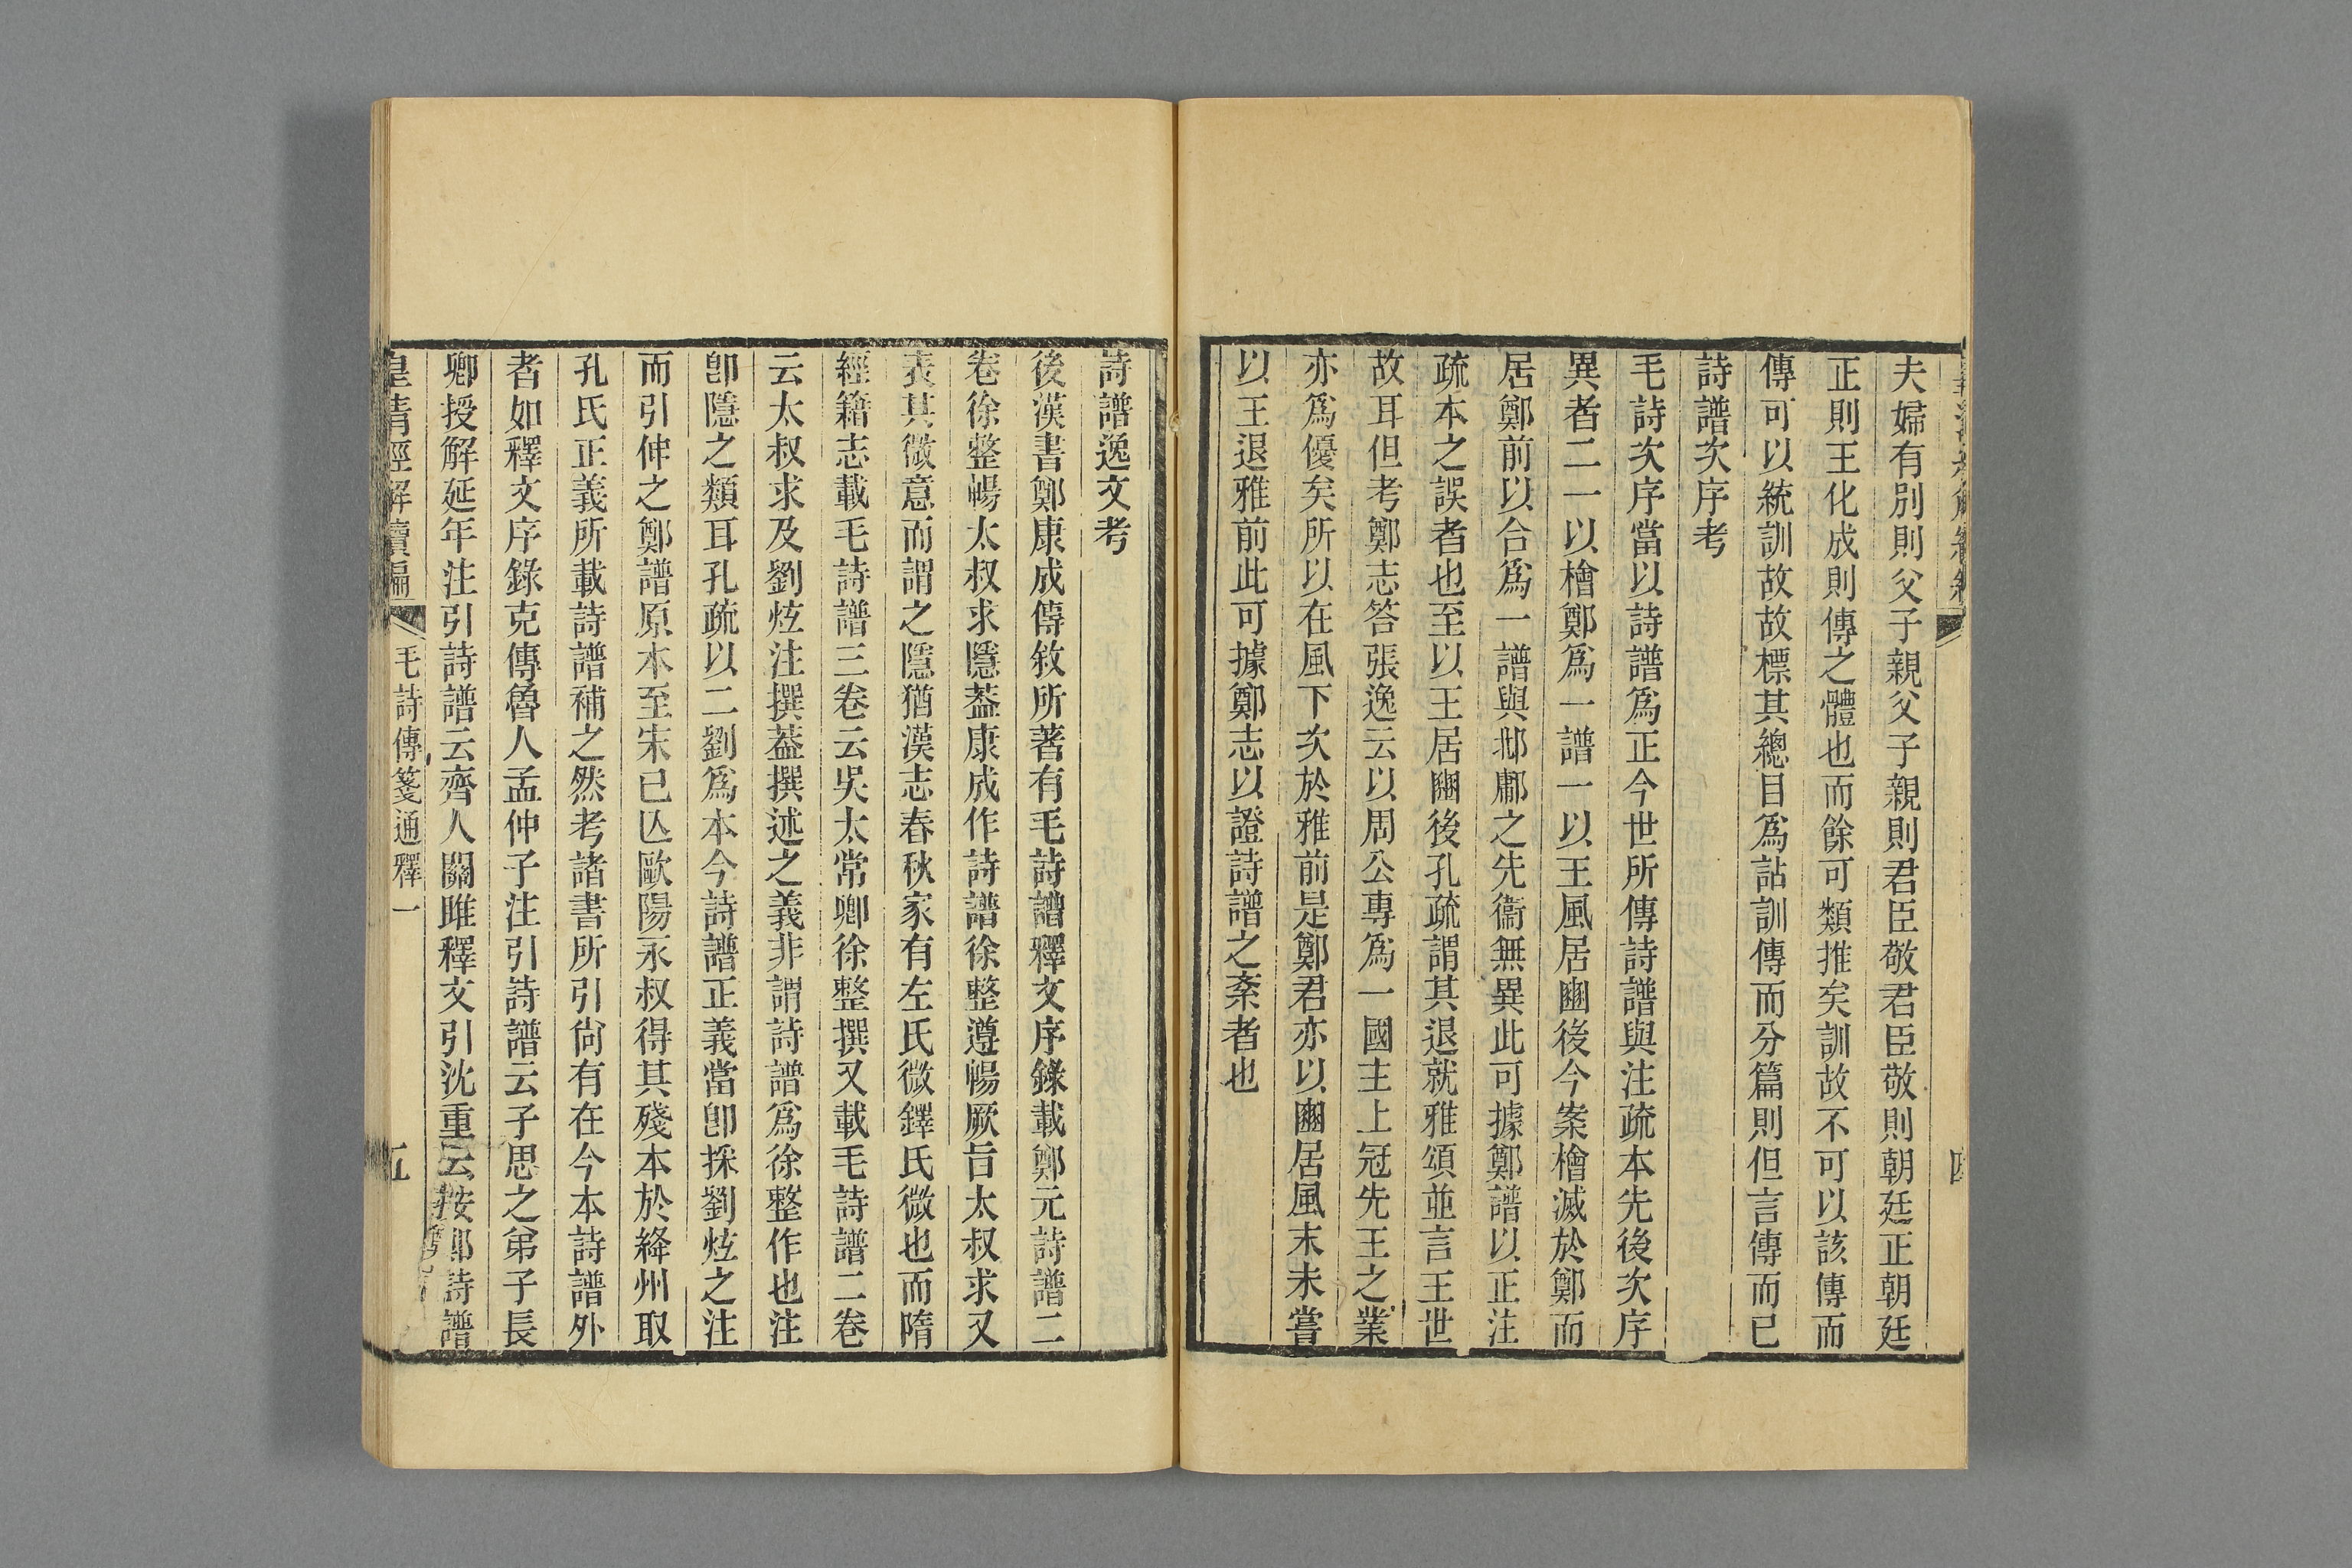 夫婦有別則父子親父子親則君臣敬君臣敬則朝廷正朝廷
正則王化成則傳之體也而餘可類推矣訓故不可以該傳而
傳可以統訓故故標其總目爲詁訓傳而分篇則但言傳而已
詩譜次序考
毛詩次序當以詩譜爲正今世所傳詩譜與注疏本先後次序
異者二一以檜鄭爲一譜一以王風居豳後今案檜滅於鄭而
居鄭前以合爲一譜與邶鄘之先衞無異此可據鄭譜以正注
疏本之誤者也至以王居豳後孔疏謂其退就雅頌並言王世
故耳但考鄭志答張逸云以周公專爲一國主上冠先王之業
亦爲優矣所以在風下次於雅前是鄭君亦以豳居風末未嘗
以王退雅前此可據鄭志以證詩譜之紊者也
詩譜逸文考
後漢書鄭康成傳敘所著有毛詩譜釋文序錄載鄭元詩譜二
卷徐整暢太叔求隱葢康成作詩譜徐整遵暢厥旨太叔求又
表其微意而謂之隱猶漢志春秋家有左氏微鐸氏微也而隋
經籍志載毛詩譜三卷云吳太常卿徐整撰又載毛詩譜二卷
云太叔求及劉炫注撰葢撰述之義非謂詩譜爲徐整作也注
卽隱之類耳孔疏以二劉爲本今詩譜正義當卽採劉炫之注
而引伸之鄭譜原本至宋已亾歐陽永叔得其殘本於絳州取
孔氏正義所載詩譜補之然考諸書所引尙有在今本詩譜外
者如釋文序錄克傳魯人孟仲子注引詩譜云子思之弟子長
卿授解延年注引詩譜云齊人關雎釋文引沈重云按鄭詩譜
皇清經解續編
毛詩傳箋通釋一
五